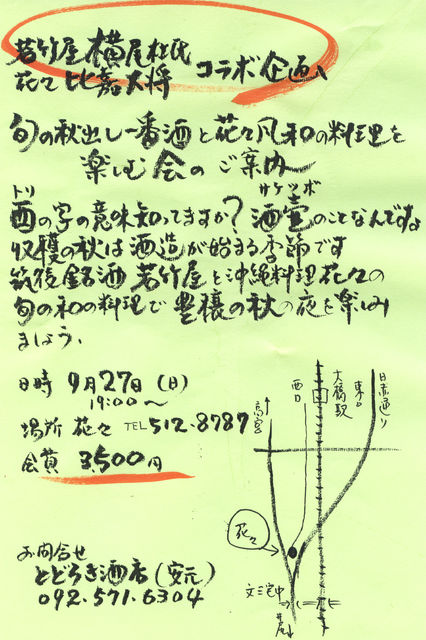 若竹屋 横尾杜氏
花々 比嘉大将
コラボ企画
旬の秋出し一番酒と花々風和の料理を
楽しむ会のご案内
トリ サケツボ
酉の字の意味知ってますか?酒壷のことなんですよ
収穫の秋は酒造が始まる季節です
筑後銘酒 若竹屋と沖縄料理花々の
旬の和の料理で豊穣の秋の夜を楽しみ
ましょう。
日時 9月27日(日)
19:00〜
場所 花々 TEL 512-8787
会費 3,500円
お問合せ
とどろき酒店(安元)
092.571.6304
高宮
西口
大橋駅
東口
日赤通り
花々